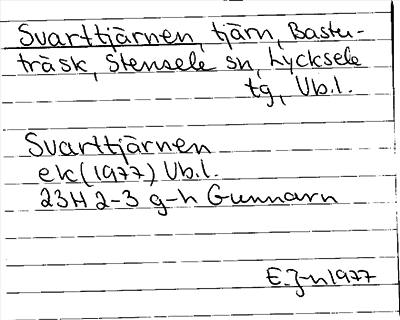 Svarttjärnen, tjärn, Bastu-
träsk, Stensele sn, Lycksele
tg, Vb.l.
Svarttjärnen
ek (1977) Vb.l.
23H 2-3 g-h Gunnarn
E.J-n 1977